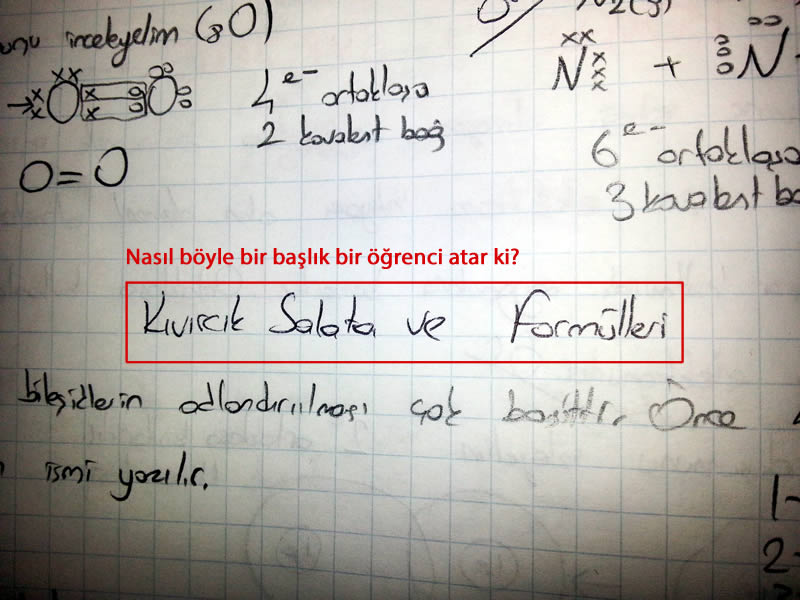 inceleyelim (8O)
N2(g)
4 e- ortaklaşa
2 kovalent bağ
O=O
N + N
6 e- ortaklaşa
3 kovalent
Nasıl böyle bir başlık bir öğrenci atar ki?
Kıvırcık Salata ve Formülleri
bileşiklerin adlandırılması çok basittir. Önce
ismi yazılır.
1-
2-